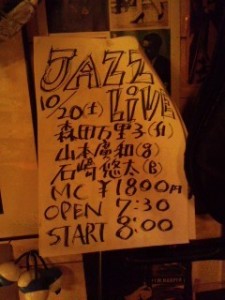 JAZZ
10/20(土) LiVE
森田万里子(vl)
山本優和(g)
石崎悠太(B)
MC ¥1800円
OPEN 7:30
START 8:00